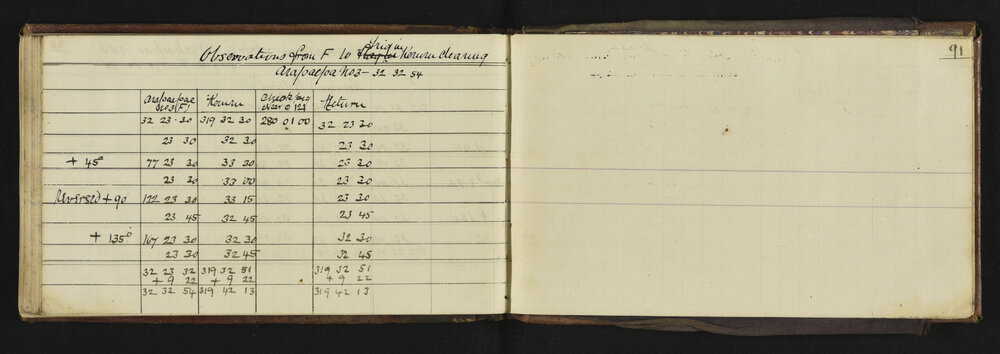 Origin
Observations from F to Komum clearing
Arapaepae No3 - 32 32 54
Arapaepae Komum Check peg Return
No3 (F) near O 121
32 23 30 319 32 30 280 01 00 32 23 30
23 30 32 30 23 30
+ 45° 77 23 30 33 30 23 30
23 30 33 00 23 30
Reversed + 90 122 23 30 33 15 23 30
23 45 32 45 23 45
+ 135° 167 23 30 32 30 32 30
23 30 32 45 32 45
32 23 32 319 32 51 319 32 51
+ 9 22 + 9 22 + 9 22
32 32 54 319 42 13 319 42 13
91